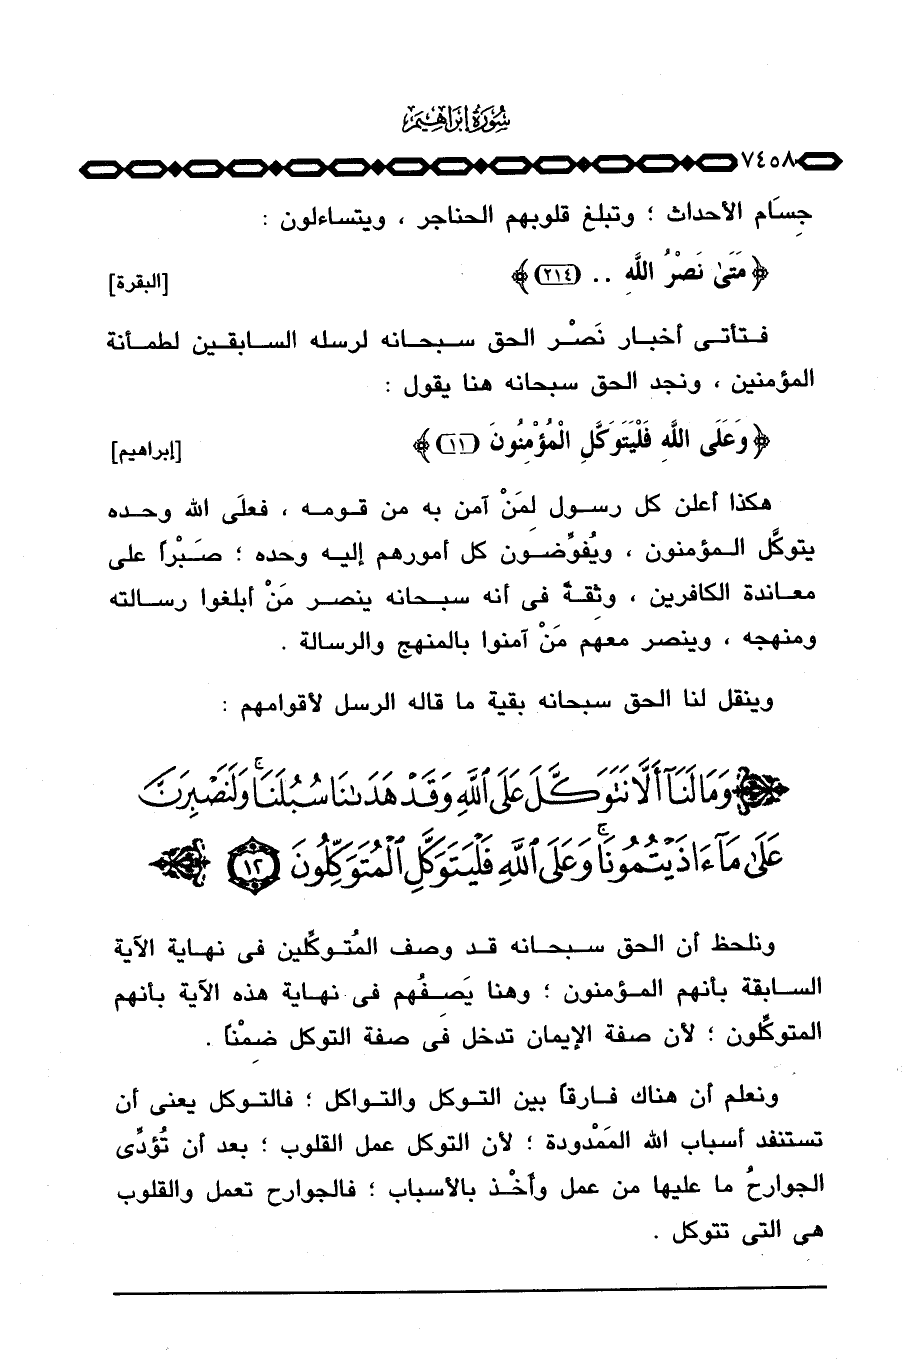 سُورَةُ إِبْرَاهِيمَ
٧٤٥٨
جِسَام الأحداث ؛ وتبلغ قلوبهم الحناجر ، ويتساءلون :
﴿ مَتَىٰ نَصْرُ اللَّهِ .. (٢١٤) ﴾ [البقرة]
فـتأتـى أخبـار نَصْـر الحق سـبحـانه لرسله السـابقـين لطمـأنة
المؤمنين ، ونجد الحق سبحانه هنا يقول :
﴿ وَعَلَى اللَّهِ فَلْيَتَوَكَّلِ الْمُؤْمِنُونَ (١١) ﴾ [إبراهيم]
هكذا أعلن كل رسـول لِمَنْ آمن به من قـومـه ، فعلَى الله وحـده
يتوكَّل المـؤمنون ، ويُفوِّضـون كل أمورهم إليـه وحده ؛ صـَبْراً على
معـاندة الكافرين ، وثِقـةً فى أنه سبـحانه ينصـر مَنْ أبلغوا رسـالته
ومنهجه ، وينصر معهم مَنْ آمنوا بالمنهج والرسالة .
وينقل لنا الحق سبحانه بقية ما قاله الرسل لأقوامهم :
وَمَا لَنَآ أَلَّا نَتَوَكَّلَ عَلَى ٱللَّهِ وَقَدْ هَدَىٰنَا سُبُلَنَا ۚ وَلَنَصْبِرَنَّ
عَلَىٰ مَآ ءَاذَيْتُمُونَا ۚ وَعَلَى ٱللَّهِ فَلْيَتَوَكَّلِ ٱلْمُتَوَكِّلُونَ ١٢
ونلحظ أن الحق سـبحـانه قـد وصف المُتوكِّلين فى نهـاية الآية
السـابقة بأنهم المـؤمنون ؛ وهنا يَصـِفُهم فى نهـاية هذه الآية بأنهم
المتوكِّلون ؛ لأن صفة الإيمان تدخل فى صفة التوكل ضِمْناً .
ونعلم أن هناك فـارقاً بين التـوكل والتـواكل ؛ فالتـوكل يعنى أن
تستنفد أسباب الله المَمْدودة ؛ لأن التوكل عمل القلوب ؛ بعد أن تُؤدِّى
الجوارحُ ما عليها من عمل وأَخْـذ بالأسباب ؛ فالجوارح تعمل والقلوب
هى التى تتوكل .